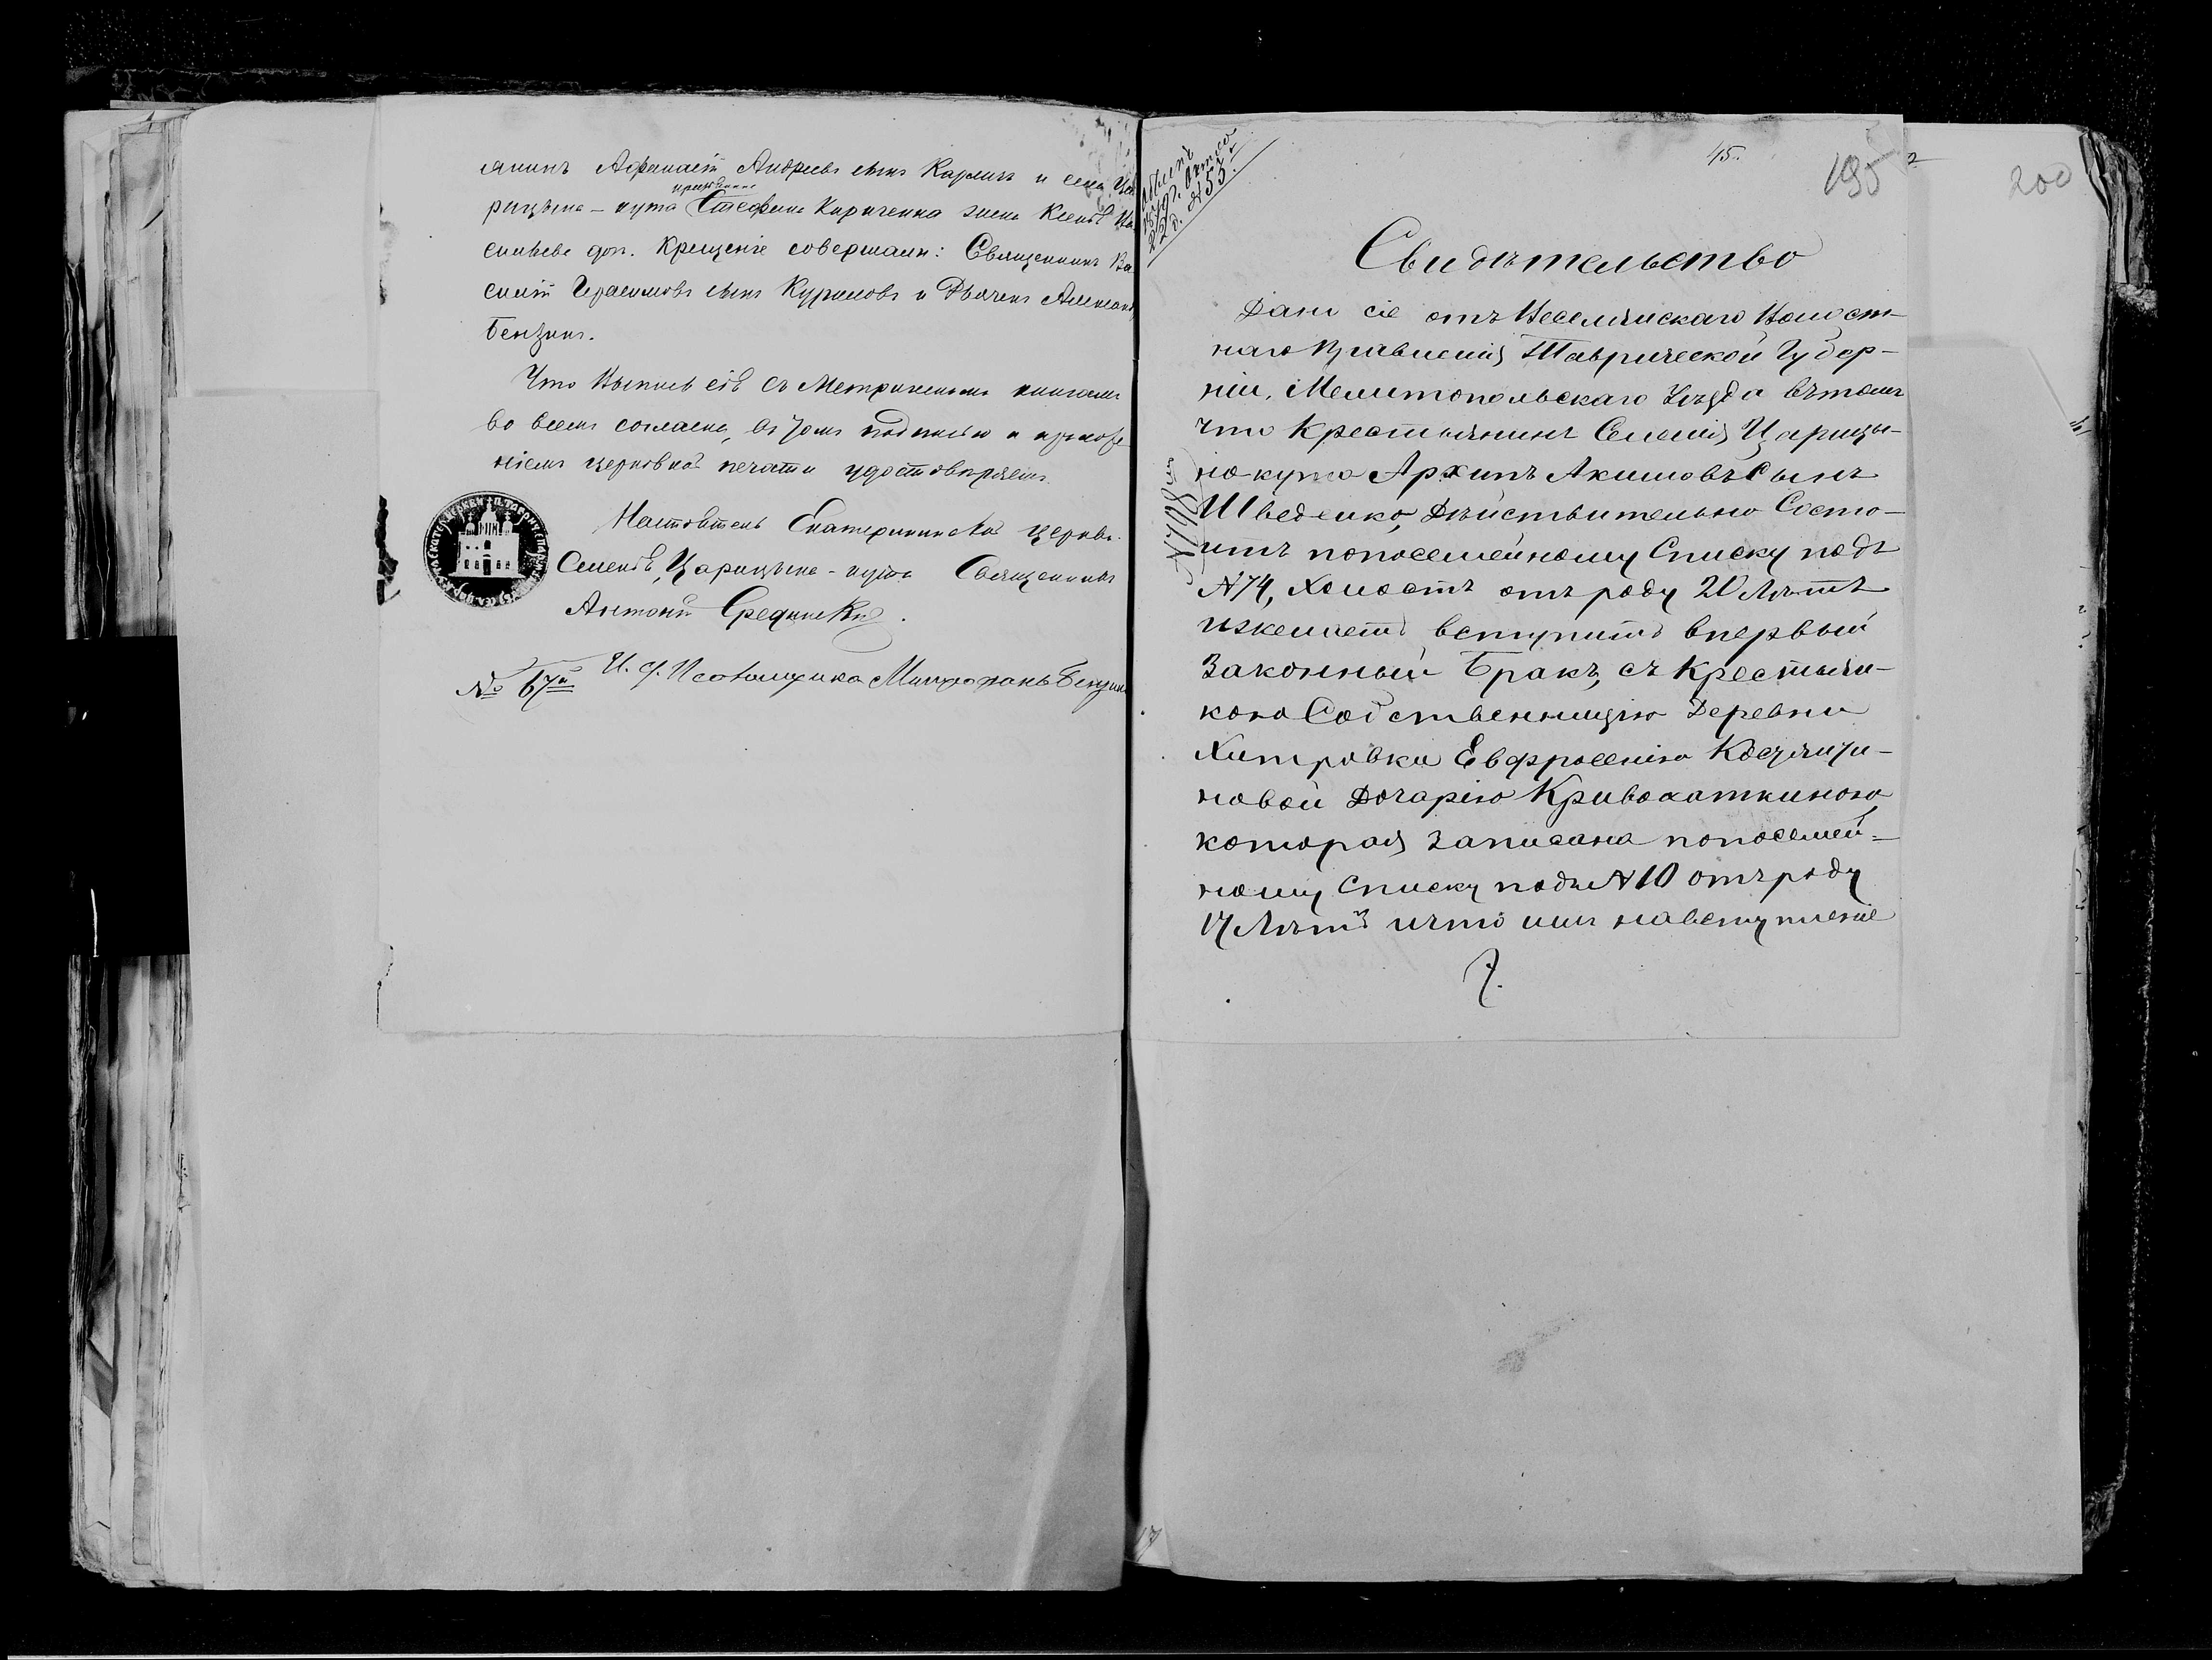 янинъ Афанасій Андреевъ сынъ Карлинъ и села Ца
рицына-кута крестьянина Стефана Кириченка жена Ксенія Ва
сильева доч. Крещеніе совершали: Священникъ Ва
силій Герасимовъ сынъ Куриловъ и Дьячекъ Александ
Бензинъ.
Что Выпись сія съ Метрическими книгами
во всемъ согласна, въ томъ подписью и приложе
ніемъ церковной печати удостовѣряемъ.
Настоятель Екатерининской церкви
Селенія Царицына-кута Священникъ
Антоній
№ 67й И. д. Псаломщика Митрофанъ Бензин
45.
195
200
№ 53.
Свидѣтельство
Дано сіе отъ Веселянскаго Волост-
наго Правленія Таврической Губер-
ніи, Мелитопольскаго Уѣзда въ томъ
что Крестьянинъ Селенія Царицы-
но-кута Архипъ Акимовъ Сынъ
Шведенко, Дѣйствительно Состо-
итъ попосемейному Списку подъ
№ 74, Холостъ отъ роду 20 Лѣтъ
ижелаетъ вступить впервый
Законный Бракъ, съ Крестьян-
кою Собственницію Деревни
Хитровки Евфросенію
новой Дочарію Кривохаткиною
которая Записана попосемей-
ному Списку подъ № 10 отъ роду
17 Лѣтъ ичто имъ навступленіе